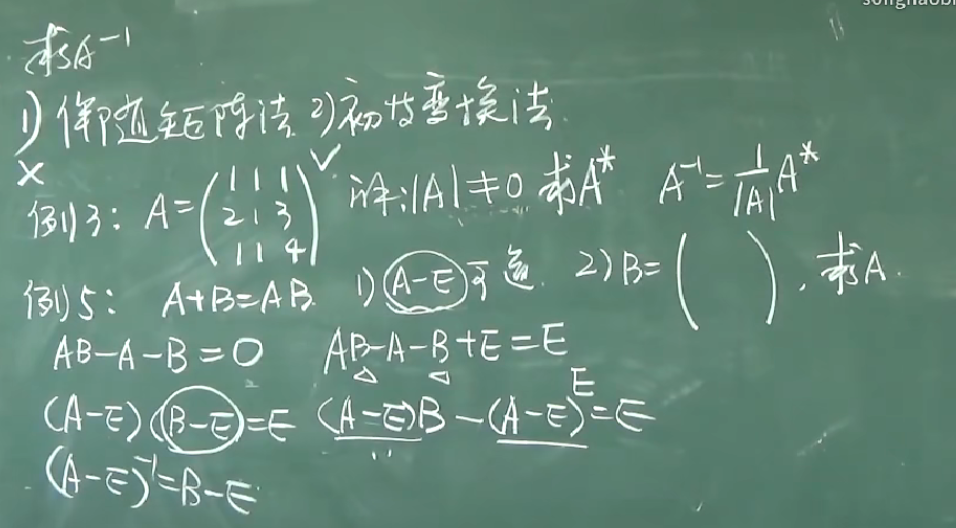 songhaobi
求A⁻¹
1) 伴随矩阵法 2) 初等变换法
× √
例3: A=(1 1 1; 2 1 3; 1 1 4) 解:|A|≠0 求A* A⁻¹=1/|A| A*
例5: A+B=AB. 1) A-E可逆 2) B=( ), 求A.
AB-A-B=0 AB-A-B+E=E
(A-E)(B-E)=E (A-E)B-(A-E)E=E
(A-E)⁻¹=B-E